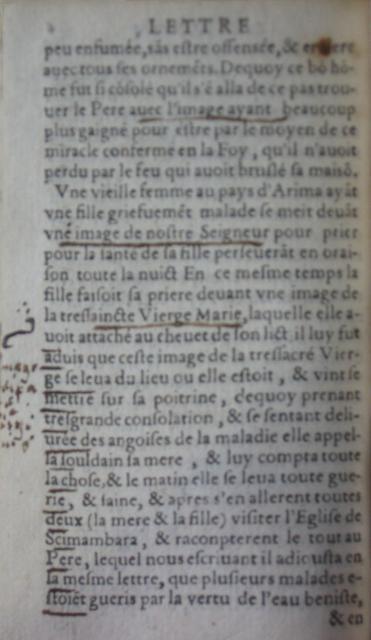 LETTRE
peu enfumée, sãs estre offensée, & entiere
auec tous ses ornemẽts. Dequoy ce bõ hõ-
me fut si cõsolé qu'il s'ẽ alla de ce pas trou-
uer le Pere auec l'image ayant beaucoup
plus gaigné pour estre par le moyen de ce
miracle conferme en la Foy, qu'il n'auoit
perdu par le feu qui auoit bruslé sa maisõ.
Vne vieille femme au pays d'Arima ayãt
vne fille griefuemẽt malade se meit deuãt
vne image de nostre Seigneur pour prier
pour la santé de sa fille perseuerãt en orai-
son toute la nuict En ce mesme temps la
fille faisoit sa priere deuant vne image de
la tressaincte Vierge Marie, laquelle elle a-
uoit attaché au cheuet de son lict, il luy fut
aduis que ceste image de la tressacré Vier-
ge se leua du lieu ou elle estoit, & vint se
mettre sur sa poitrine, dequoy prenant
tresgrande consolation, & se sentant deli-
urée des angoises de la maladie elle appel-
la souldain sa mere, & luy compta toute
la chose, & le matin elle se leua toute gue-
rie, & saine, & apres s'en allerent toutes
deux (la mere & la fille) visiter l'Eglise de
Scimambara, & raconpterent le tout au
Pere, lequel nous escriuant il adiousta en
sa mesme lettre, que plusieurs malades e-
stoiẽt gueris par la vertu de l'eau beniste,
& en